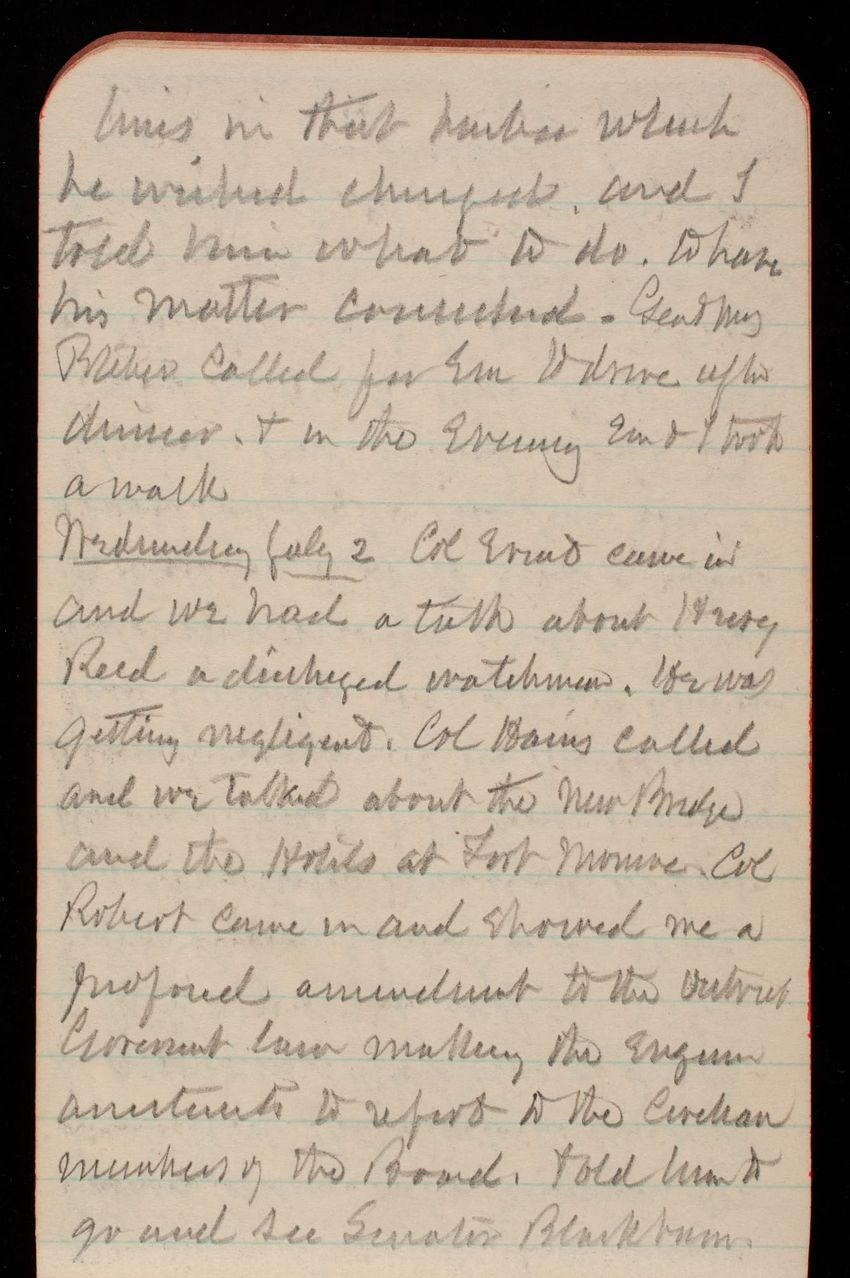 lines in that harbor which
he wished changed, and I
told him what to do. to have
his matter considered - Genl & Mrs
called for Em to drive after
dinner. & in the Evening Em & I took
a walk
Wednesday July 2 Col Ernst came in
and we had a talk about Henry
Reed a discharged watchman. He was
getting negligent. Col Hains called
and we talked about the New Bridge
and the Hotels at Fort Monroe. Col
Robert came in and showed me a
proposed amendment to the District
Government law making the Engineer
assistants to report to the Civilian
members of the Board. told him to
go and see Senator Blackburn.